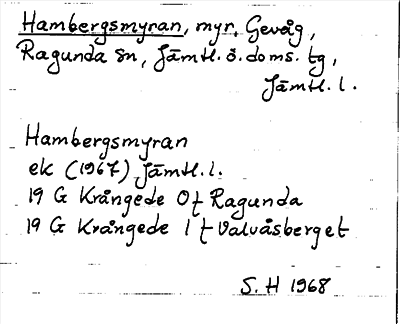 Hambergsmyran, myr, Gevåg,
Ragunda sn, Jämtl. ö. doms. tg,
Jämtl. l.
Hambergsmyran
ek (1967) Jämtl. l.
19 G Krångede 0f Ragunda
19 G Krångede 1f Valvåsberget
S. H 1968